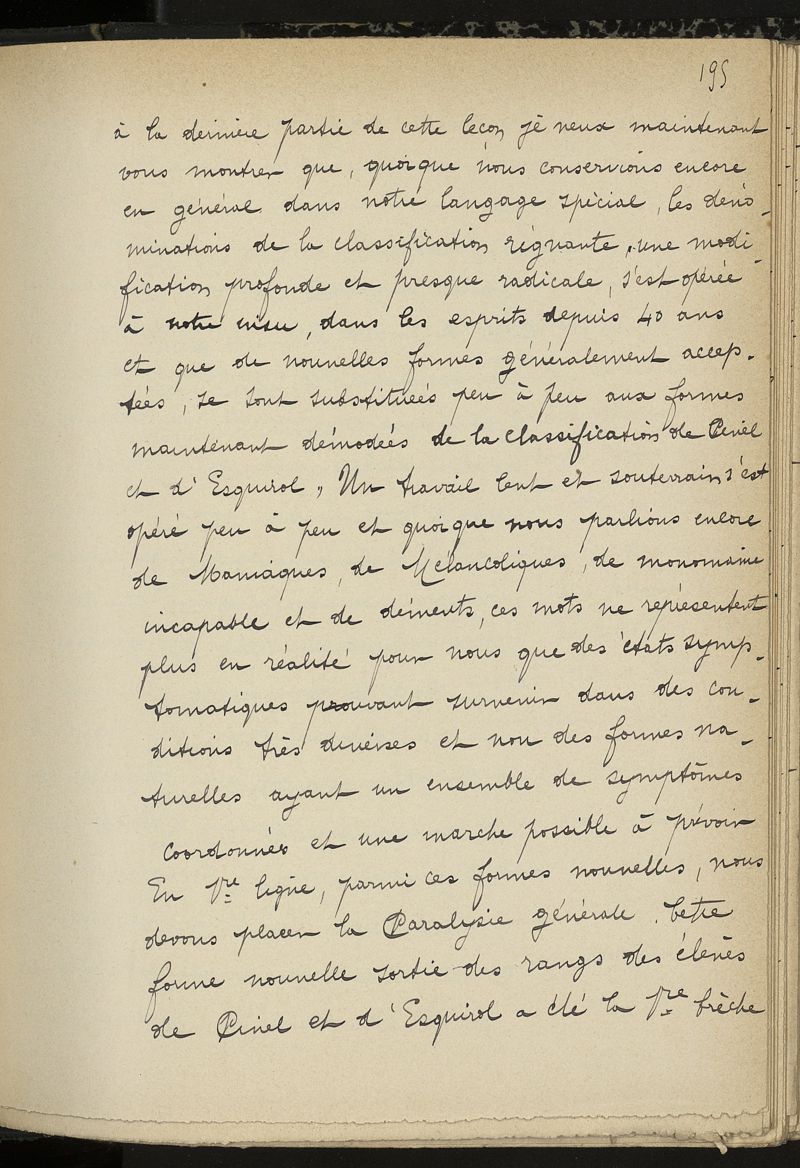 195
à la dernière partie de cette leçon je veux maintenant
vous montrer que, quoique nous conservions encore
en général dans notre langage spécial, les déno-
minations de la classification régnante, une modi-
fication profonde et presque radicale, s'est opérée
à notre insu, dans les esprits depuis 40 ans
et que de nouvelles formes généralement accep-
tées, se sont substituées peu à peu aux formes
maintenant démodées de la classification de Pinel
et d'Esquirol, Un travail lent et souterrain s'est
opéré peu à peu et quoique nous parlions encore
de Maniaques, de Mélancoliques, de monomanie
incapable et de déments, ces mots ne représentent
plus en réalité pour nous que des états symp-
tomatiques pouvant survenir dans des con-
ditions très diverses et non des formes na-
turelles ayant un ensemble de symptômes
coordonnés et une marche possible à prévoir
En 1re ligne, parmi ces formes nouvelles, nous
devons placer la Paralysie générale. Cette
forme nouvelle sortie des rangs des élèves
de Pinel et d'Esquirol a été la 1re brèche